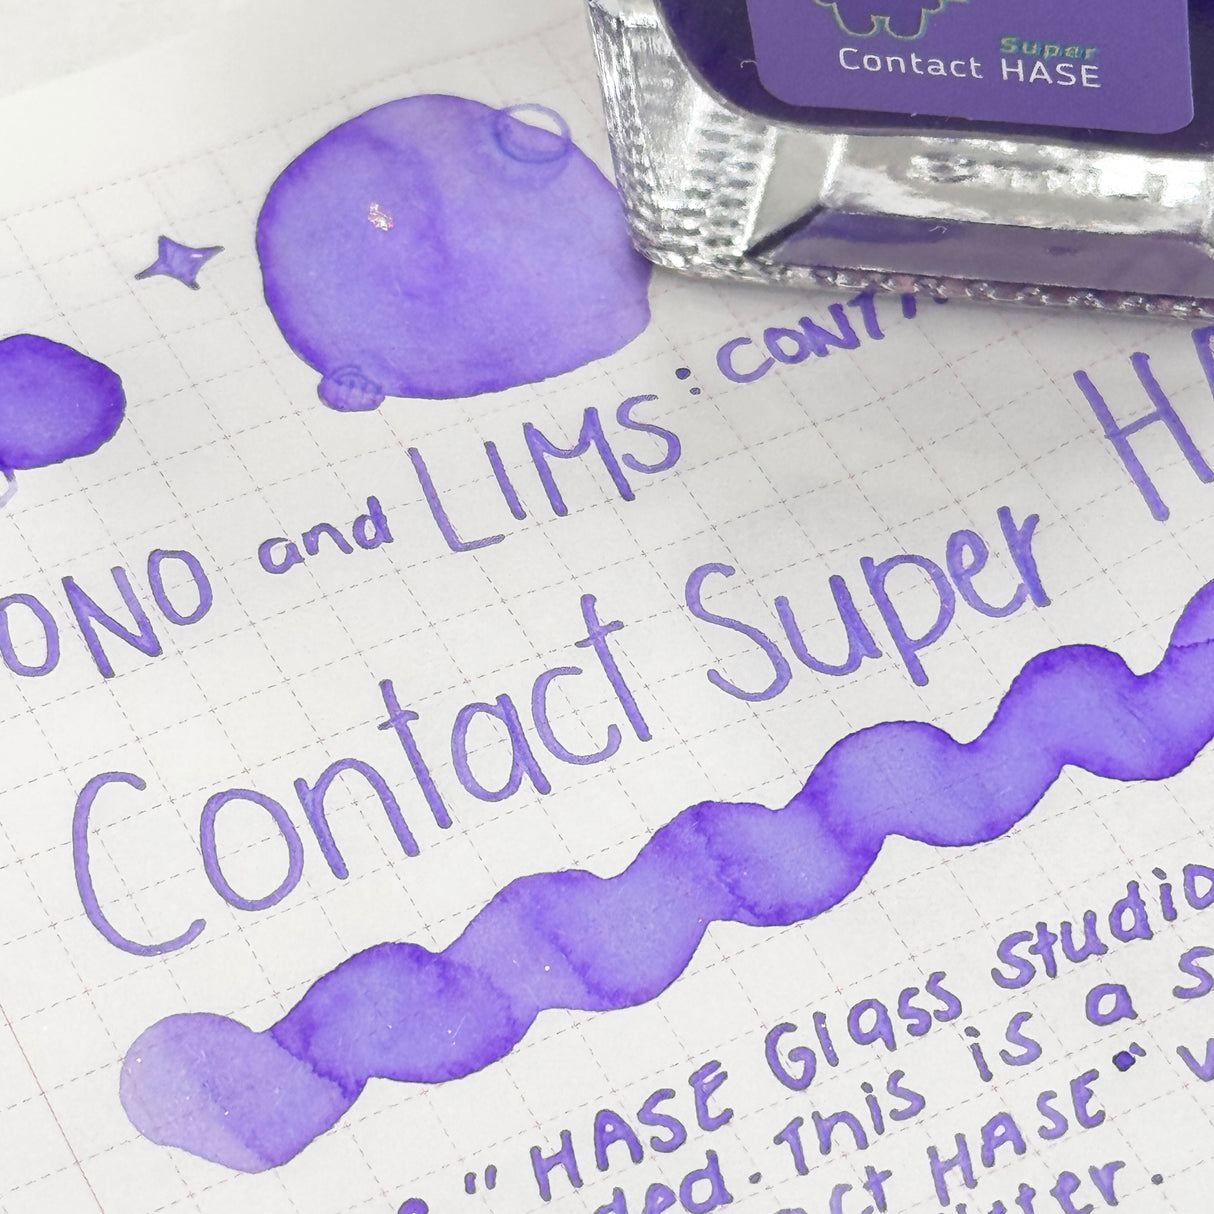 Super
Contact HASE
ONO and LIMS: CONT
Contact Super
"HASE Glass Studio
This is a
HASE" w